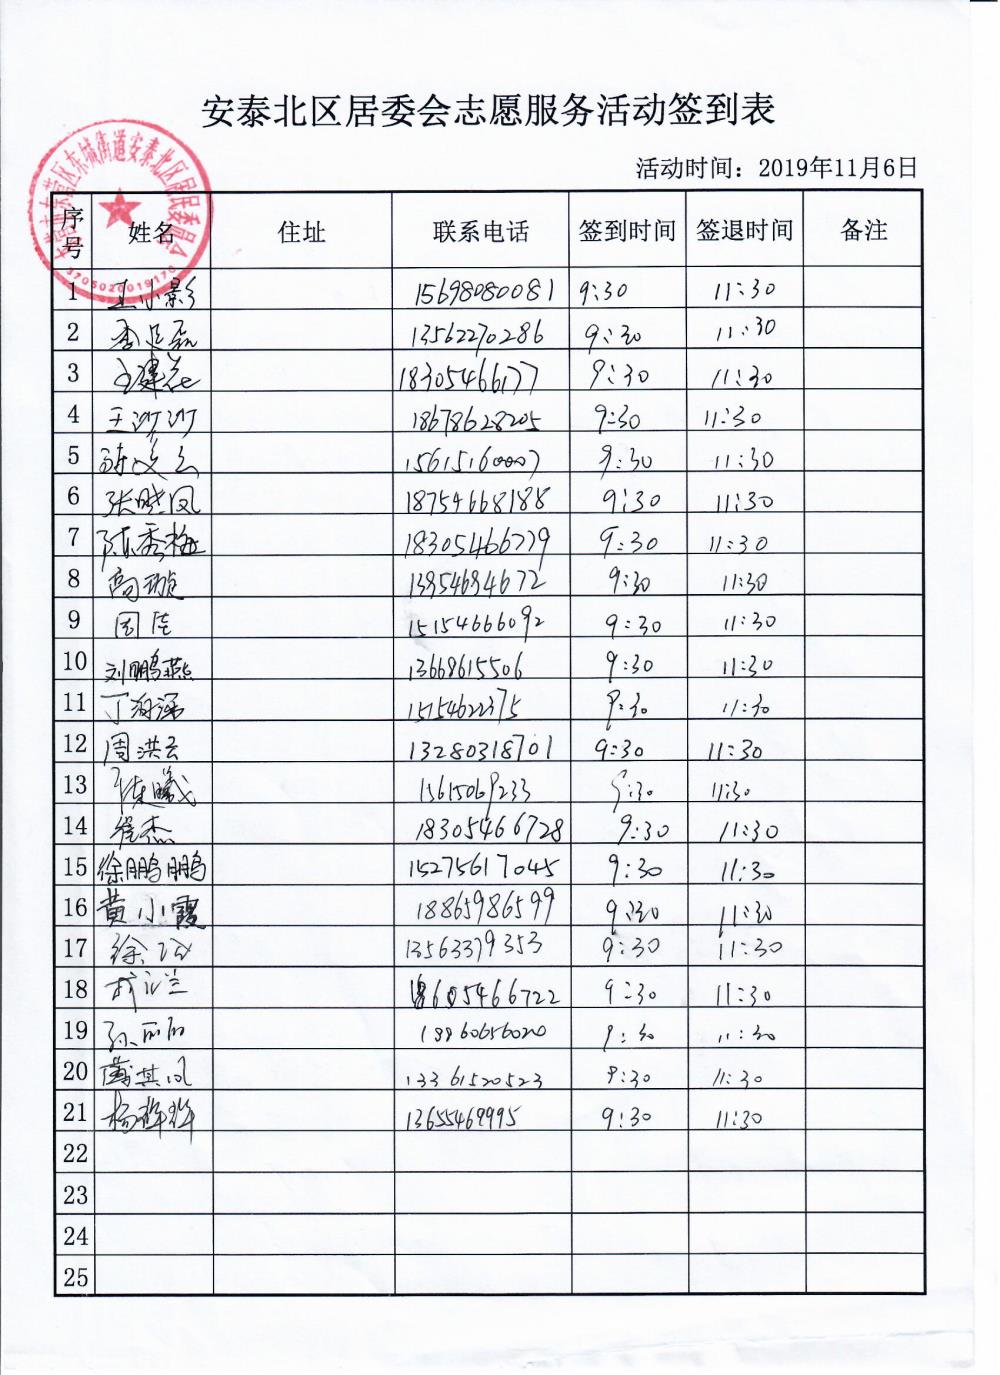 安泰北区居委会志愿服务活动签到表
活动时间：2019年11月6日
东营市东营区东城街道安泰北区居民委员会
3705020019170
序号 姓名 住址 联系电话 签到时间 签退时间 备注
1 王小影 15698080081 9:30 11:30
2 李 13562270286 9:30 11:30
3 王建花 18305466177 9:30 11:30
4 王沙沙 18678628205 9:30 11:30
5 15615160007 9:30 11:30
6 张晓凤 18754668188 9:30 11:30
7 陈秀梅 18305466779 9:30 11:30
8 高璇 13954694672 9:30 11:30
9 周佳 15154666092 9:30 11:30
10 刘鹏燕 13668615506 9:30 11:30
11 丁海深 15154622375 9:30 11:30
12 周洪云 13280318701 9:30 11:30
13 15615069233 9:30 11:30
14 崔杰 18305466728 9:30 11:30
15 徐鹏鹏 15275617045 9:30 11:30
16 黄小霞 18865986599 9:30 11:30
17 徐 13563379353 9:30 11:30
18 18605466722 9:30 11:30
19 孙丽丽 9:30 11:30
20 其凤 13361520523 9:30 11:30
21 杨 13655469995 9:30 11:30
22
23
24
25